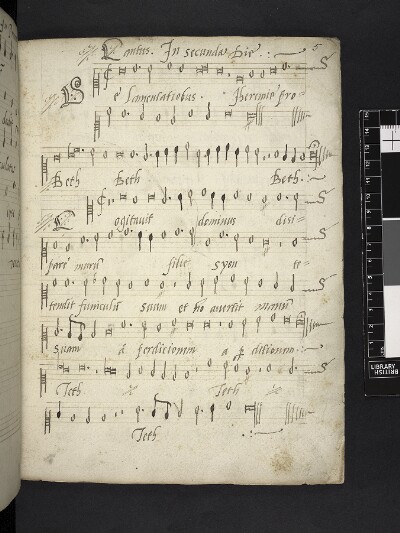 Cantus. In secunda Die.
5
De Lamentationibus. Jheremie pro-
Beth Beth Beth.
Cogitavit dominus dis-
pare murū filie syon te-
tendit funiculū suum et nō avertit manū
suam a perdicionem a
Teth Teth
Teth
LIBRARY
BRITISH